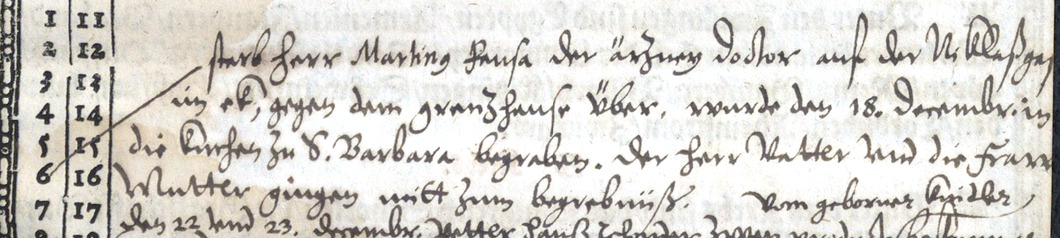 1 11
2 12
3 13
4 14
5 15
6 16
7 17
sterb herr Martinus Pansa der ärzney doctor auf der Niklaßgaß
im ek, gegen dem grenzhause über, wurde den 18. decembr. in
die kirchen zu S. Barbara begraben. der herr Vatter und die Fraw
Mutter gingen mitt zum begrebnüß. vom geborner
den 22 und 23. decembr. Vetter Hanß